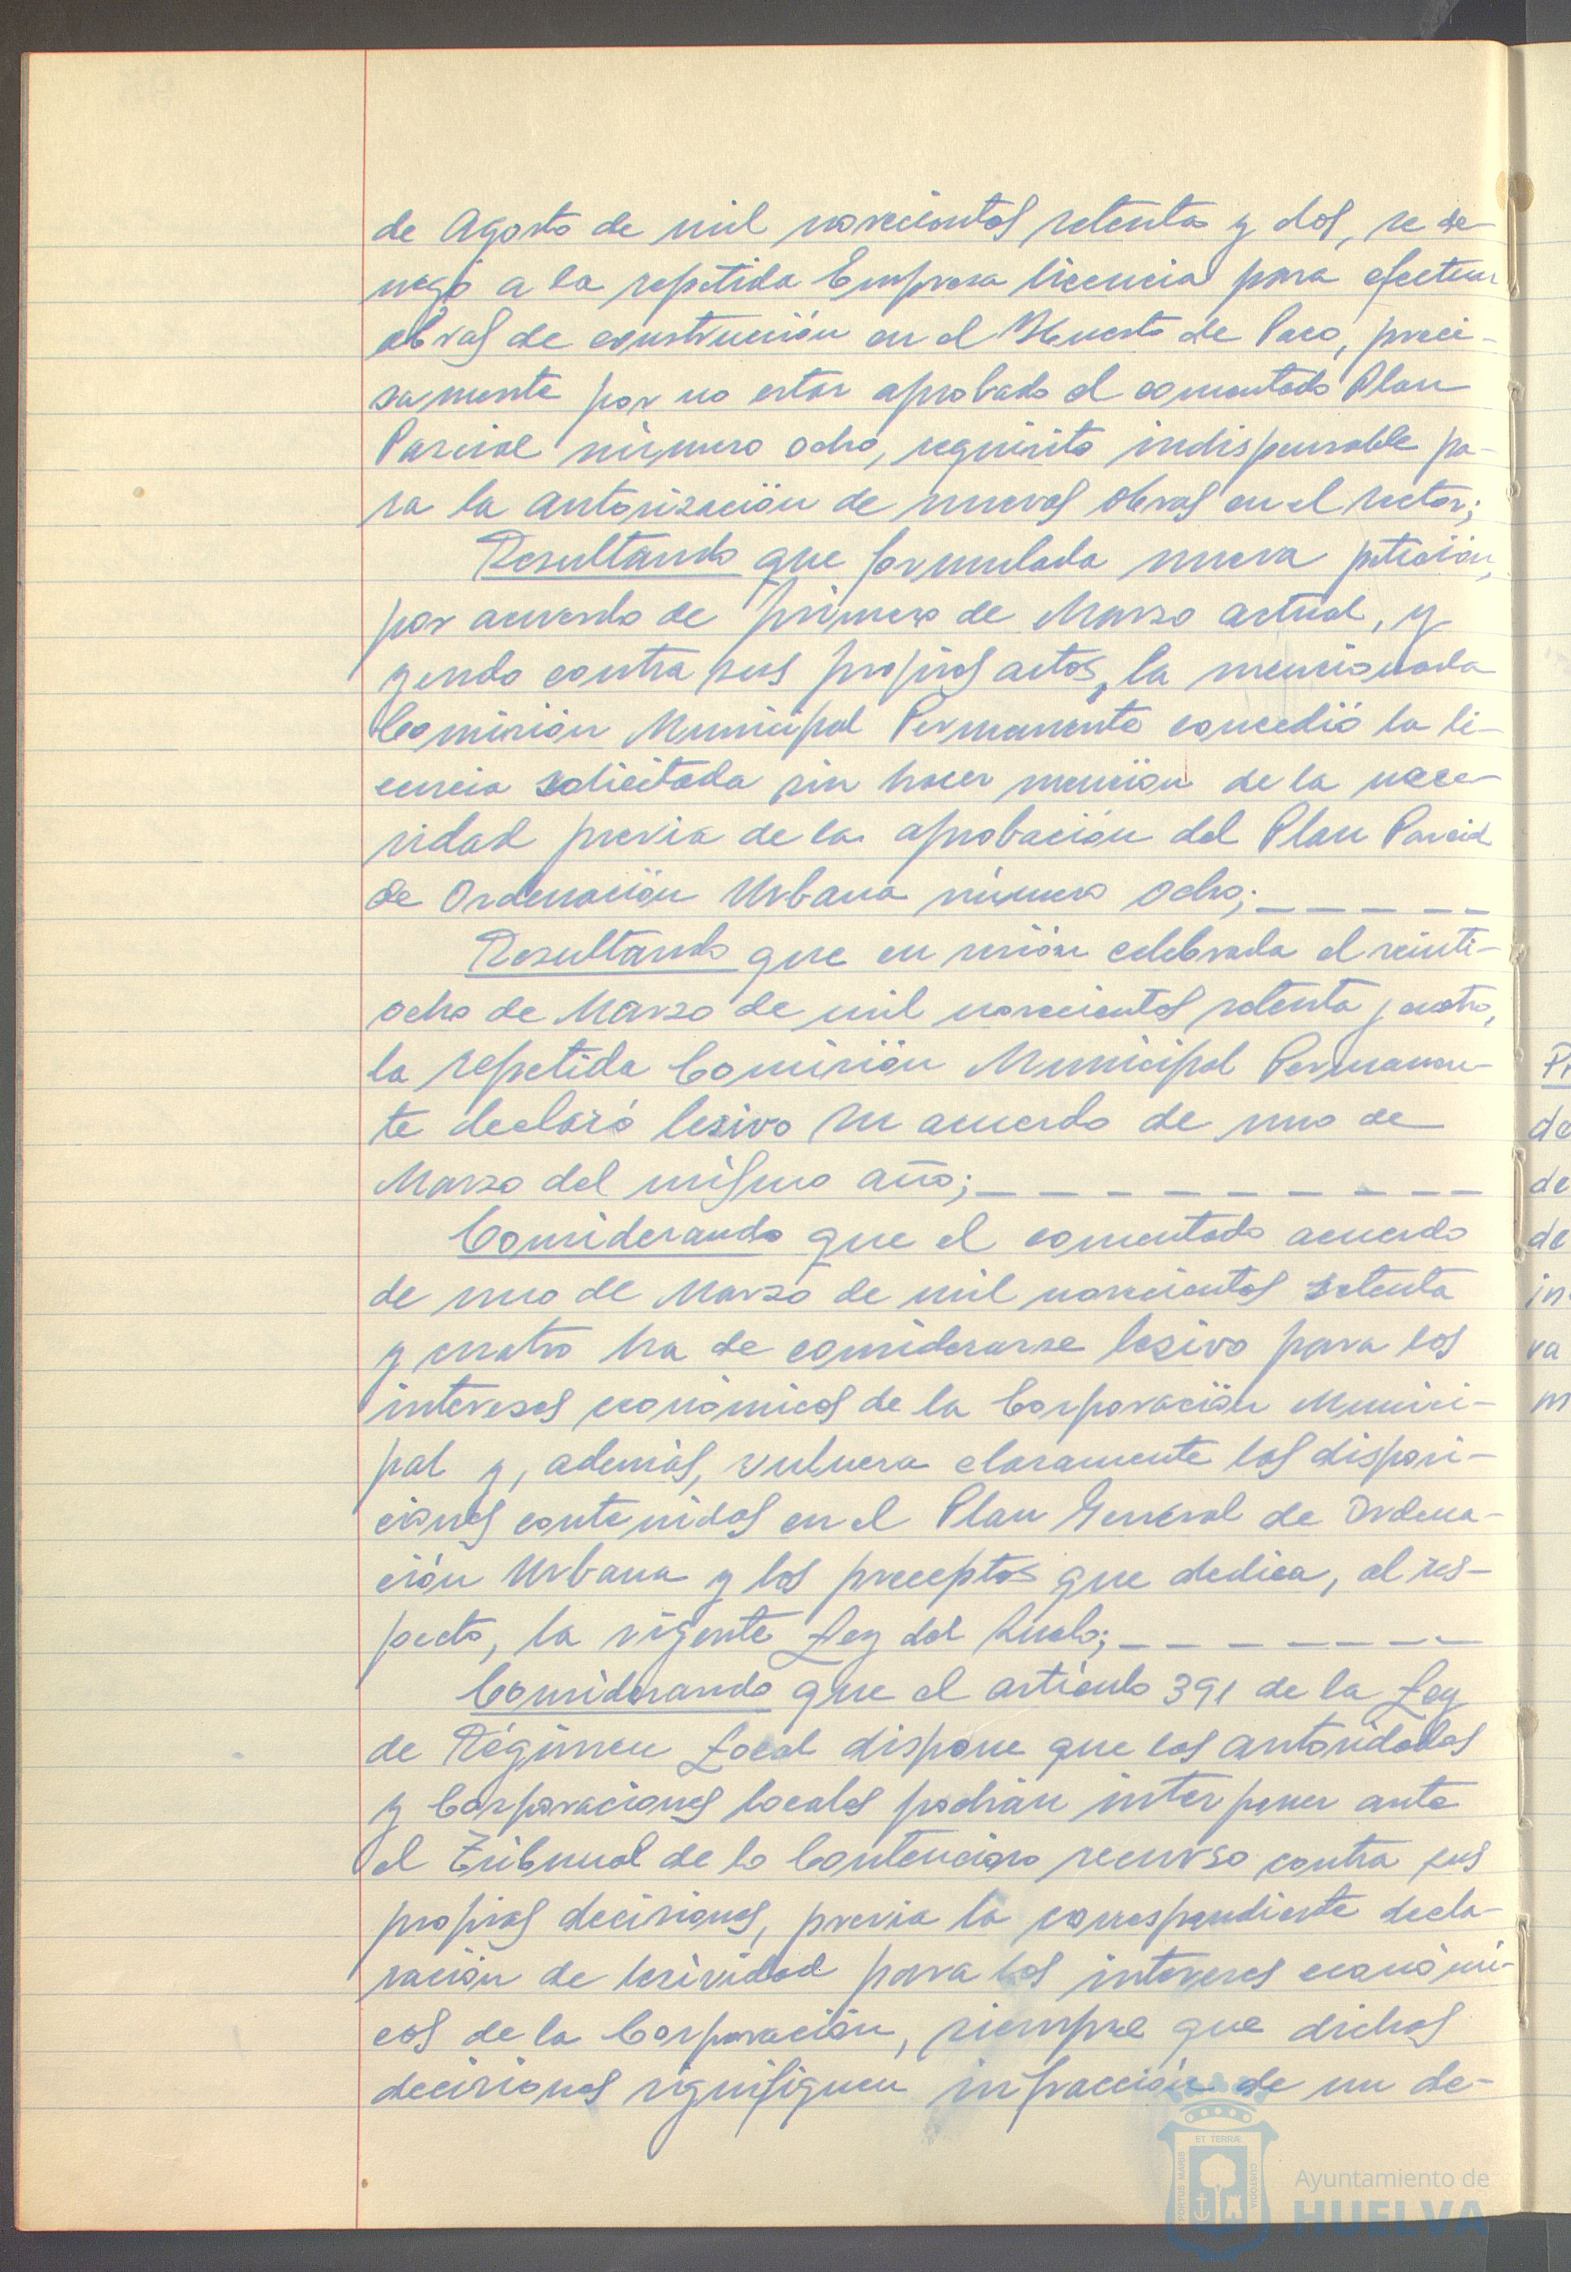 de Agosto de mil novecientos setenta y dos, se de-
negó a la repetida Empresa licencia para efectuar
obras de construcción en el Huerto de Paco, preci-
samente por no estar aprobado el comentado Plan
Parcial número ocho, requisito indispensable pa-
ra la autorización de nuevas obras en el sector;
Resultando que formulada nueva petición,
por acuerdo de primero de Marzo actual, y
yendo contra sus propios actos, la mencionada
Comisión Municipal Permanente concedió la li-
cencia solicitada sin hacer mención de la nece-
sidad previa de la aprobación del Plan Parcial
de Ordenación Urbana número ocho; _ _ _ _ _
Resultando que en sesión celebrada el veinti-
ocho de Marzo de mil novecientos setenta y cuatro,
la repetida Comisión Municipal Permanen-
te declaró lesivo su acuerdo de uno de
Marzo del mismo año; _ _ _ _ _ _ _ _ _ _
Considerando que el comentado acuerdo
de uno de Marzo de mil novecientos setenta
y cuatro ha de considerarse lesivo para los
intereses económicos de la Corporación Munici-
pal y, además, vulnera claramente las disposi-
ciones contenidas en el Plan General de Ordena-
ción Urbana y los preceptos que dedica, al res-
pecto, la vigente Ley del Suelo; _ _ _ _ _ _ _
Considerando que el artículo 391 de la Ley
de Régimen Local dispone que las autoridades
y Corporaciones locales podrán interponer ante
el Tribunal de lo Contencioso recurso contra sus
propias decisiones, previa la correspondiente decla-
ración de lesividad para los intereses económi-
cos de la Corporación, siempre que dichas
decisiones signifiquen infracción de un de-
PORTUS MARIS ET TERRAE CUSTODIA
Ayuntamiento de
HUELVA